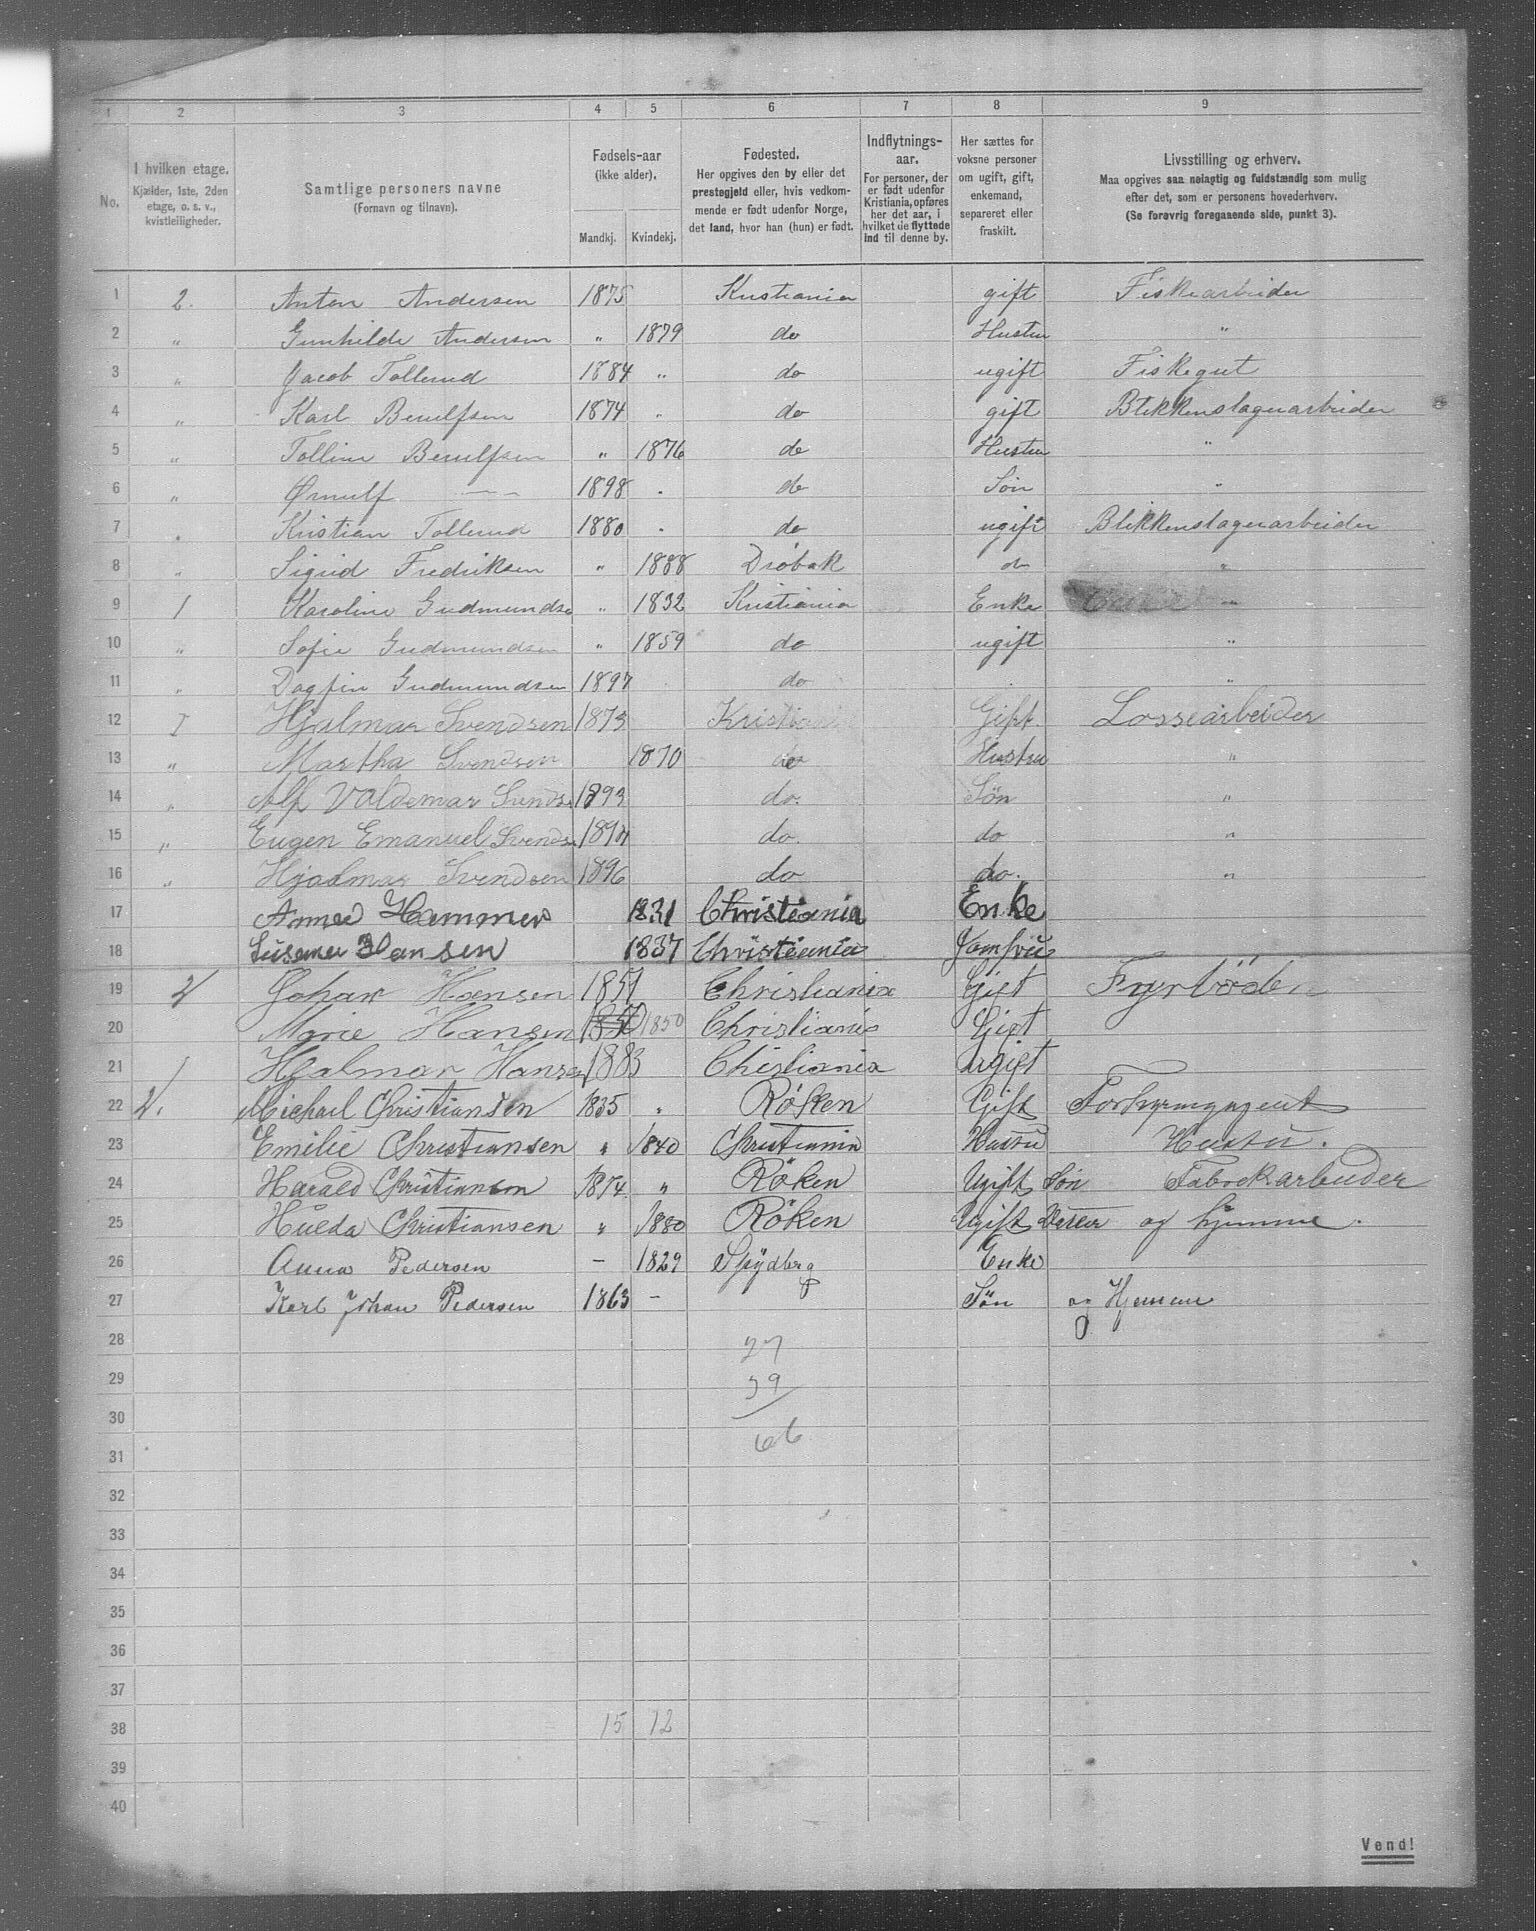 1 2 3 4 5 6 7 8 9
No. I hvilken etage. Kjælder, 1ste, 2den etage, o. s. v., kvistleiligheder. Samtlige personers navne (Fornavn og tilnavn). Fødsels-aar (ikke alder). Mandkj. Kvindekj. Fødested. Her opgives den by eller det prestegjeld eller, hvis vedkommende er født udenfor Norge, det land, hvor han (hun) er født. Indflytnings-aar. For personer, der er født udenfor Kristiania, opføres her det aar, i hvilket de flyttede ind til denne by. Her sættes for voksne personer om ugift, gift, enkemand, separeret eller fraskilt. Livsstilling og erhverv. Maa opgives saa nøiagtig og fuldstændig som mulig efter det, som er personens hovederhverv. (Se forøvrig foregaaende side, punkt 3).
1 2. Anton Andersen 1875 Kristiania gift Fiskearbeider
2 " Gunhilde Andersen " 1879 do Hustru "
3 " Jacob Tollerud 1884 " do ugift Fiskegut
4 " Karl Berulfsen 1874 " do gift Blikkenslagerarbeider
5 " Tolline Berulfsen " 1876 do Hustru "
6 " Ørnulf — 1898 . do Søn "
7 " Kristian Tollerud 1880 . do ugift Blikkenslagerarbeider
8 " Sigrid Fredriksen " 1888 Drøbak do "
9 1 Karoline Gudmundse " 1832 Kristiania Enke "
10 " Sofie Gudmundsen " 1859 do ugift "
11 " Dagfin Gudmundsen 1897 do "
12 I Hjalmar Svendsen 1873 Kristiania Gift. Lossearbeider
13 " Martha Svendsen 1870 do Hustru "
14 " Alf Valdemar Svends 1893 do. Søn "
15 " Eugen Emanuel Svends 1894 do. do "
16 " Hjalmar Svendsen 1896 do do. "
17 Anne Hammer 1831 Christiania Enke
18 Susanne Hansen 1837 Christiania Jomfru
19 2 Johan Hansen 1851 Christiania Gift Fyrböder
20 Marie Hansen 1850 1850 Christiania Gift
21 1 Halmar Hansen 1883 Chistiania ugift
22 2. Michael Christiansen 1835 " Røken Gift
23 Emilie Christiansen " 1840 Christiania Hustru Hustru.
24 Harald Christiansen 1874 " Røken Ugift Søn Fabrikarbeider
25 Hulda Christiansen " 1880 Røken Ugift Datter og hjemme.
26 Anna Pedersen – 1829 Spydberg Enke
27 Karl Johan Pedersen 1863 – Søn og Hjemme
28 27
29 39
30
31 66
32
33
34
35
36
37
38 15 12
39
40
Vend!